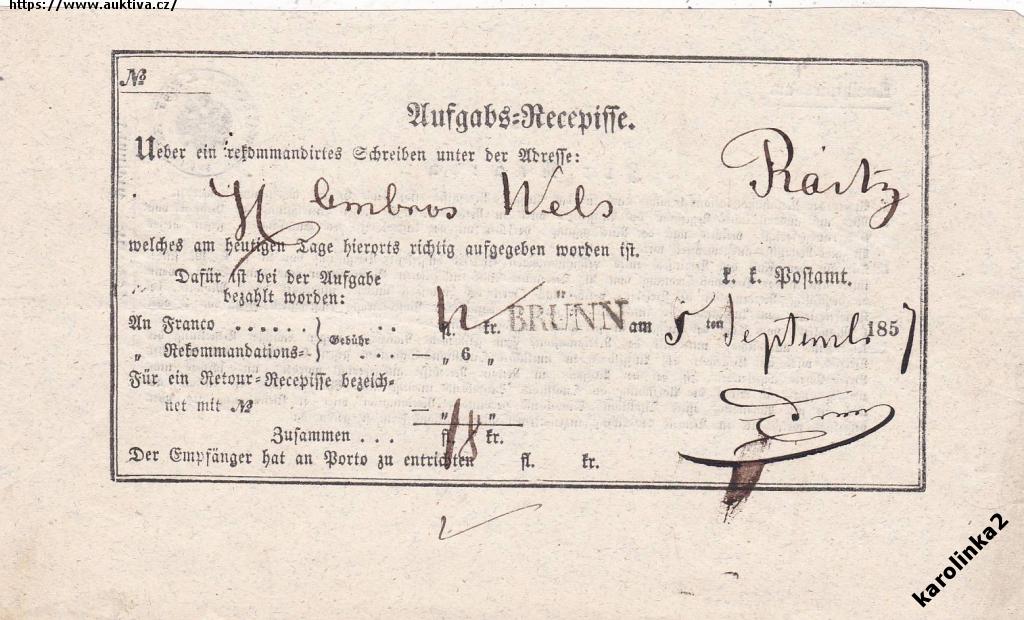 https://www.auktiva.cz/
№
Aufgabs-Recepisse.
Ueber ein rekommandirtes Schreiben unter der Adresse:
H Ambros Wels Raitz
welches am heutigen Tage hierorts richtig aufgegeben worden ist.
Dafür ist bei der Aufgabe
bezahlt worden:
k. k. Postamt.
An Franco . . . . . . . . fl. kr. BRÜNN am 5 ten Septemb 1857
„ Rekommandations- Gebühr . . . — „ 6 „
Für ein Retour-Recepisse bezeich-
net mit № — „ „
Zusammen . . . fl. 18 kr.
Der Empfänger hat an Porto zu entrichten fl. kr.
karolinka2